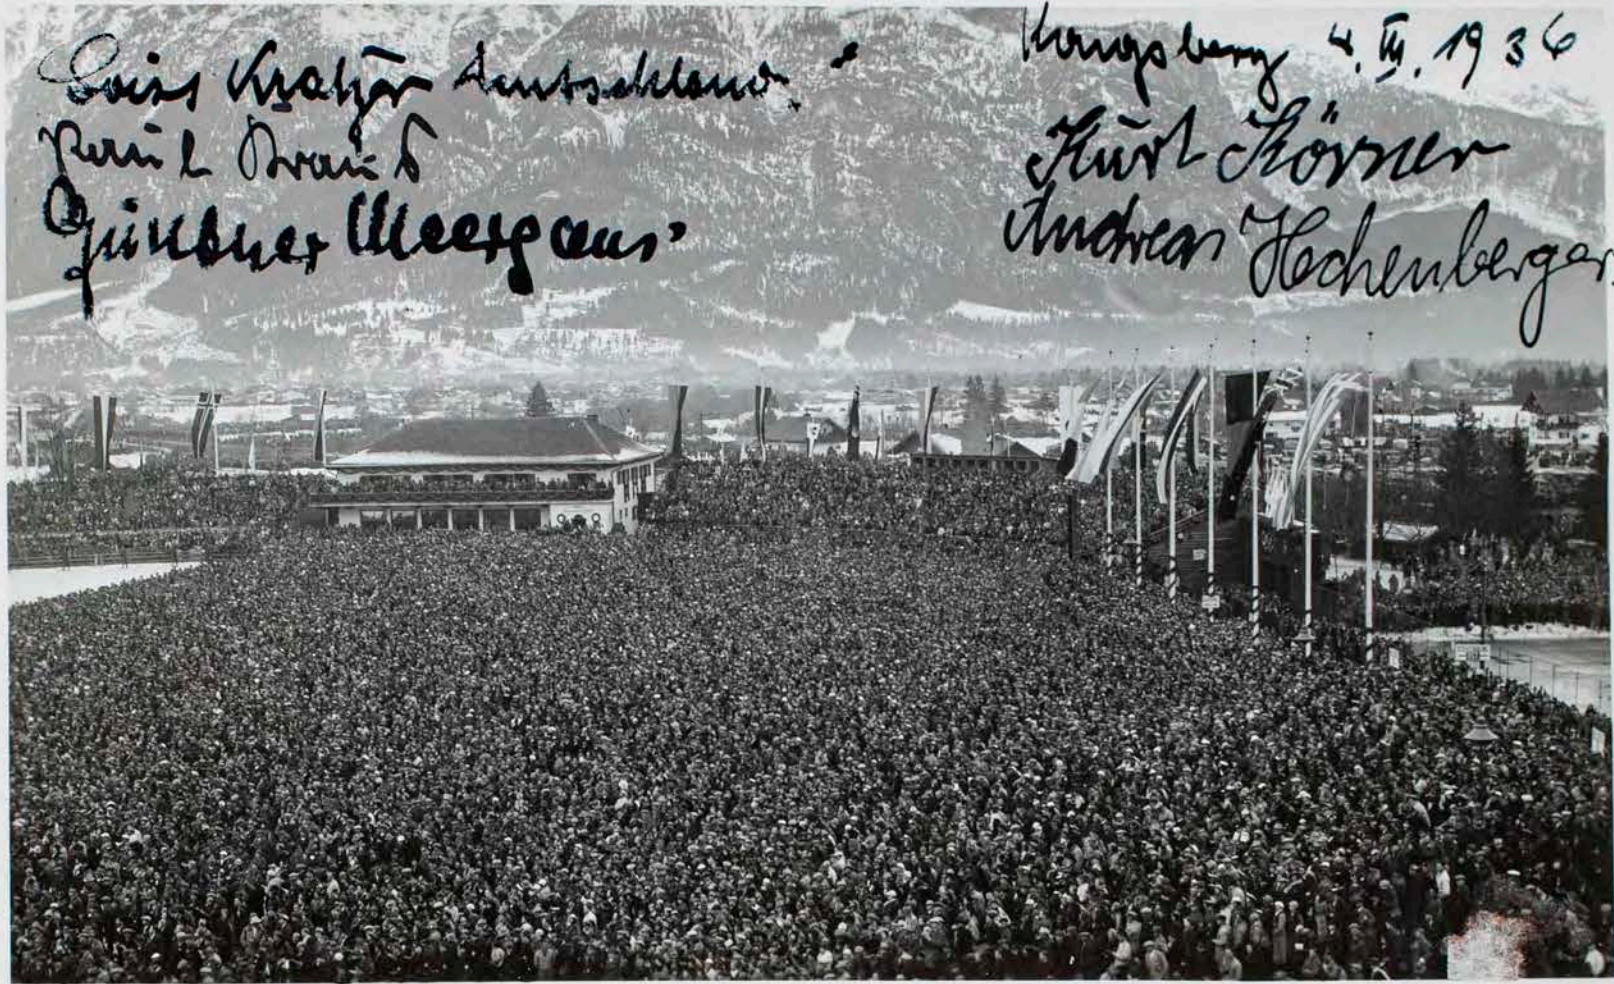 Loisl Kratzer Deutschland.
Paul Kraus
Günther Meergans.
Kongsberg 4.III.1936
Kurt Körner
Andreas Hechenberger.